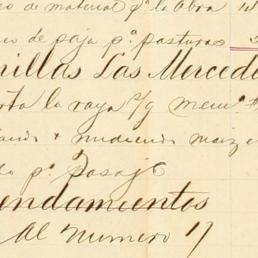 de material pª la Obra
de paja pª pasturas
illas Las Mercede
la raya s/g memª
midiendo maiz
pª Pasaje
ndamientos
Al Numero 17